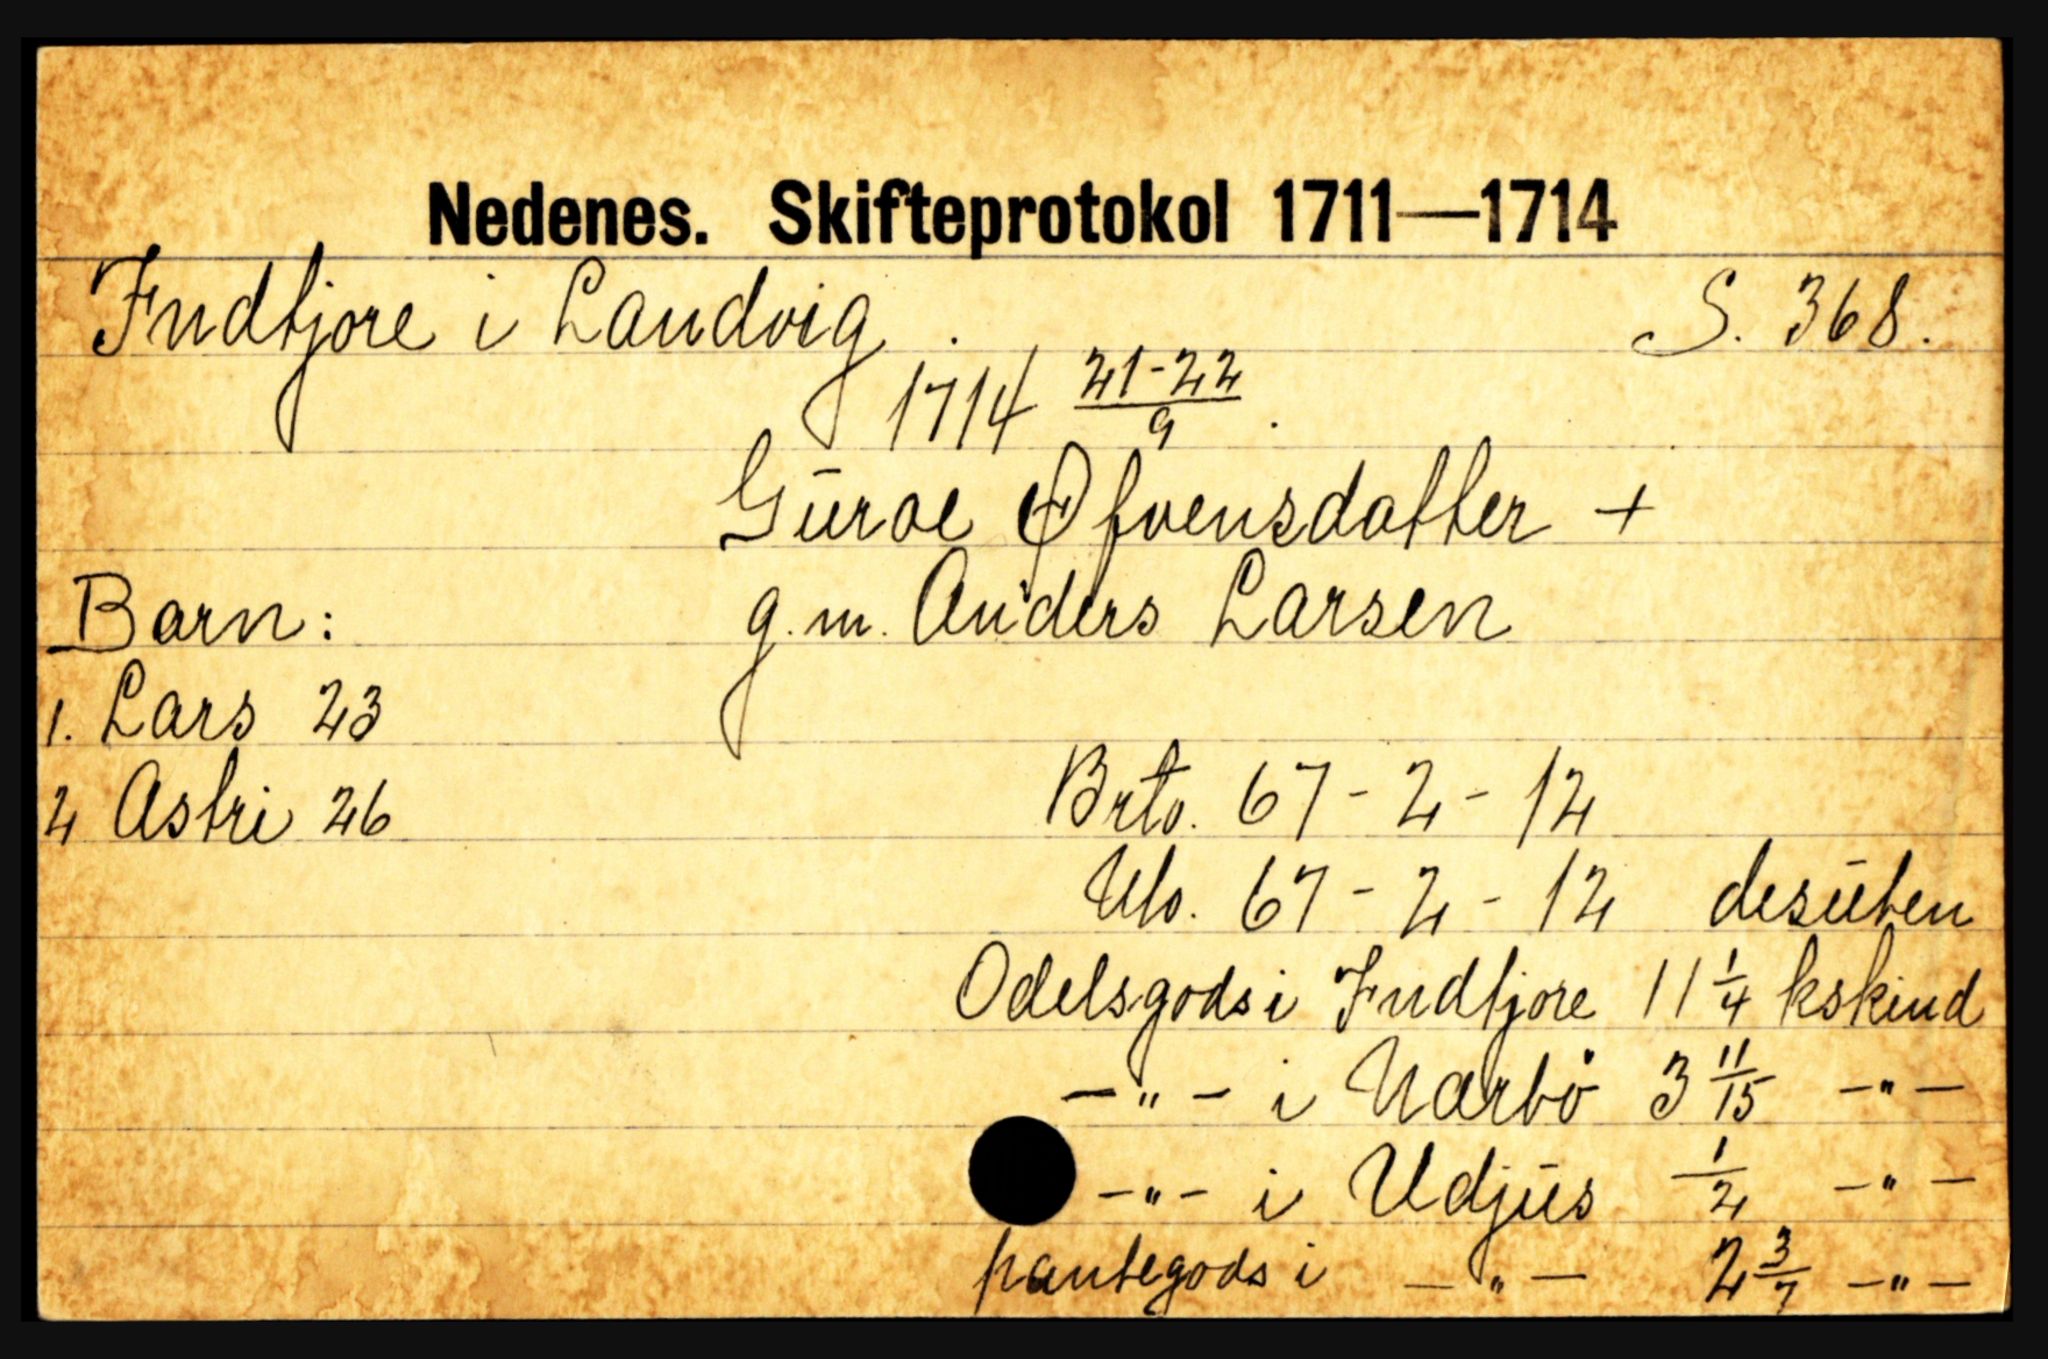 Nedenes. Skifteprotokol 1711—1714
Fndtjore i Landvig. S. 368.
1714 21-22/9.
Guroe Øfvensdatter +
Barn: g.m. Anders Larsen
1. Lars 23
2 Astri 26 Brto. 67-2-12
Uto. 67-2-12 desuten
Odelsgods i Fndtjore 11 1/4 kskind
-"- i Narbö 3 11/15 -"-
-"- i Udjus 1/2 -"-
pantegods i -"- 2 3/7 -"-